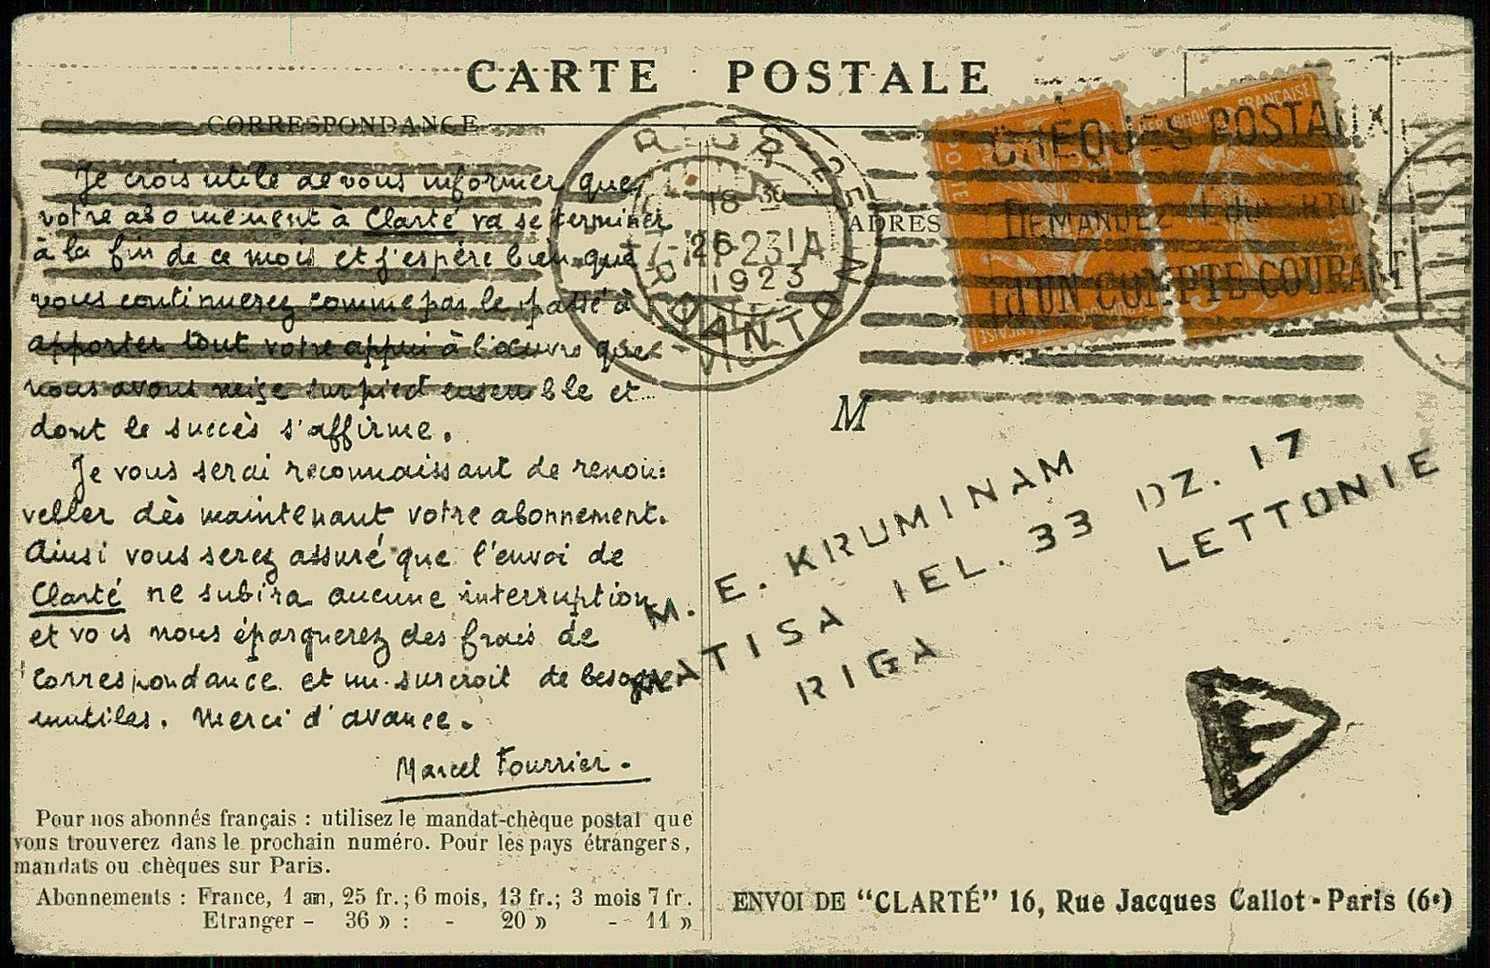 CARTE POSTALE
CORRESPONDANCE
Je crois utile de vous informer que
votre abonnement à Clarté va se terminer
à la fin de ce mois et j'espère bien que
vous continuerez comme par le passé à
apporter tout votre appui à l'œuvre que
nous avons mise sur pied ensemble et
dont le succès s'affirme.
Je vous serai reconnaissant de renou=
veller dès maintenant votre abonnement.
Ainsi vous serez assuré que l'envoi de
Clarté ne subira aucune interruption
et vous nous épargnerez des frais de
correspondance et un surcroit de besogne
inutiles. Merci d'avance.
Marcel Fourrier.
Pour nos abonnés français : utilisez le mandat-chèque postal que
vous trouverez dans le prochain numéro. Pour les pays étrangers,
mandats ou chèques sur Paris.
Abonnements : France, 1 an, 25 fr.; 6 mois, 13 fr.; 3 mois 7 fr.
Etranger - 36 » : - 20 » - 11 »
18 30
26
1923
DANTON
ADRES
CHÈQUES POSTAUX
DEMANDEZ
D'UN COMPTE COURANT
FRANÇAISE
M
M. E. KRUMINAM
MATISA IEL. 33 DZ. 17
RIGA LETTONIE
T
ENVOI DE "CLARTÉ" 16, Rue Jacques Callot - Paris (6e)